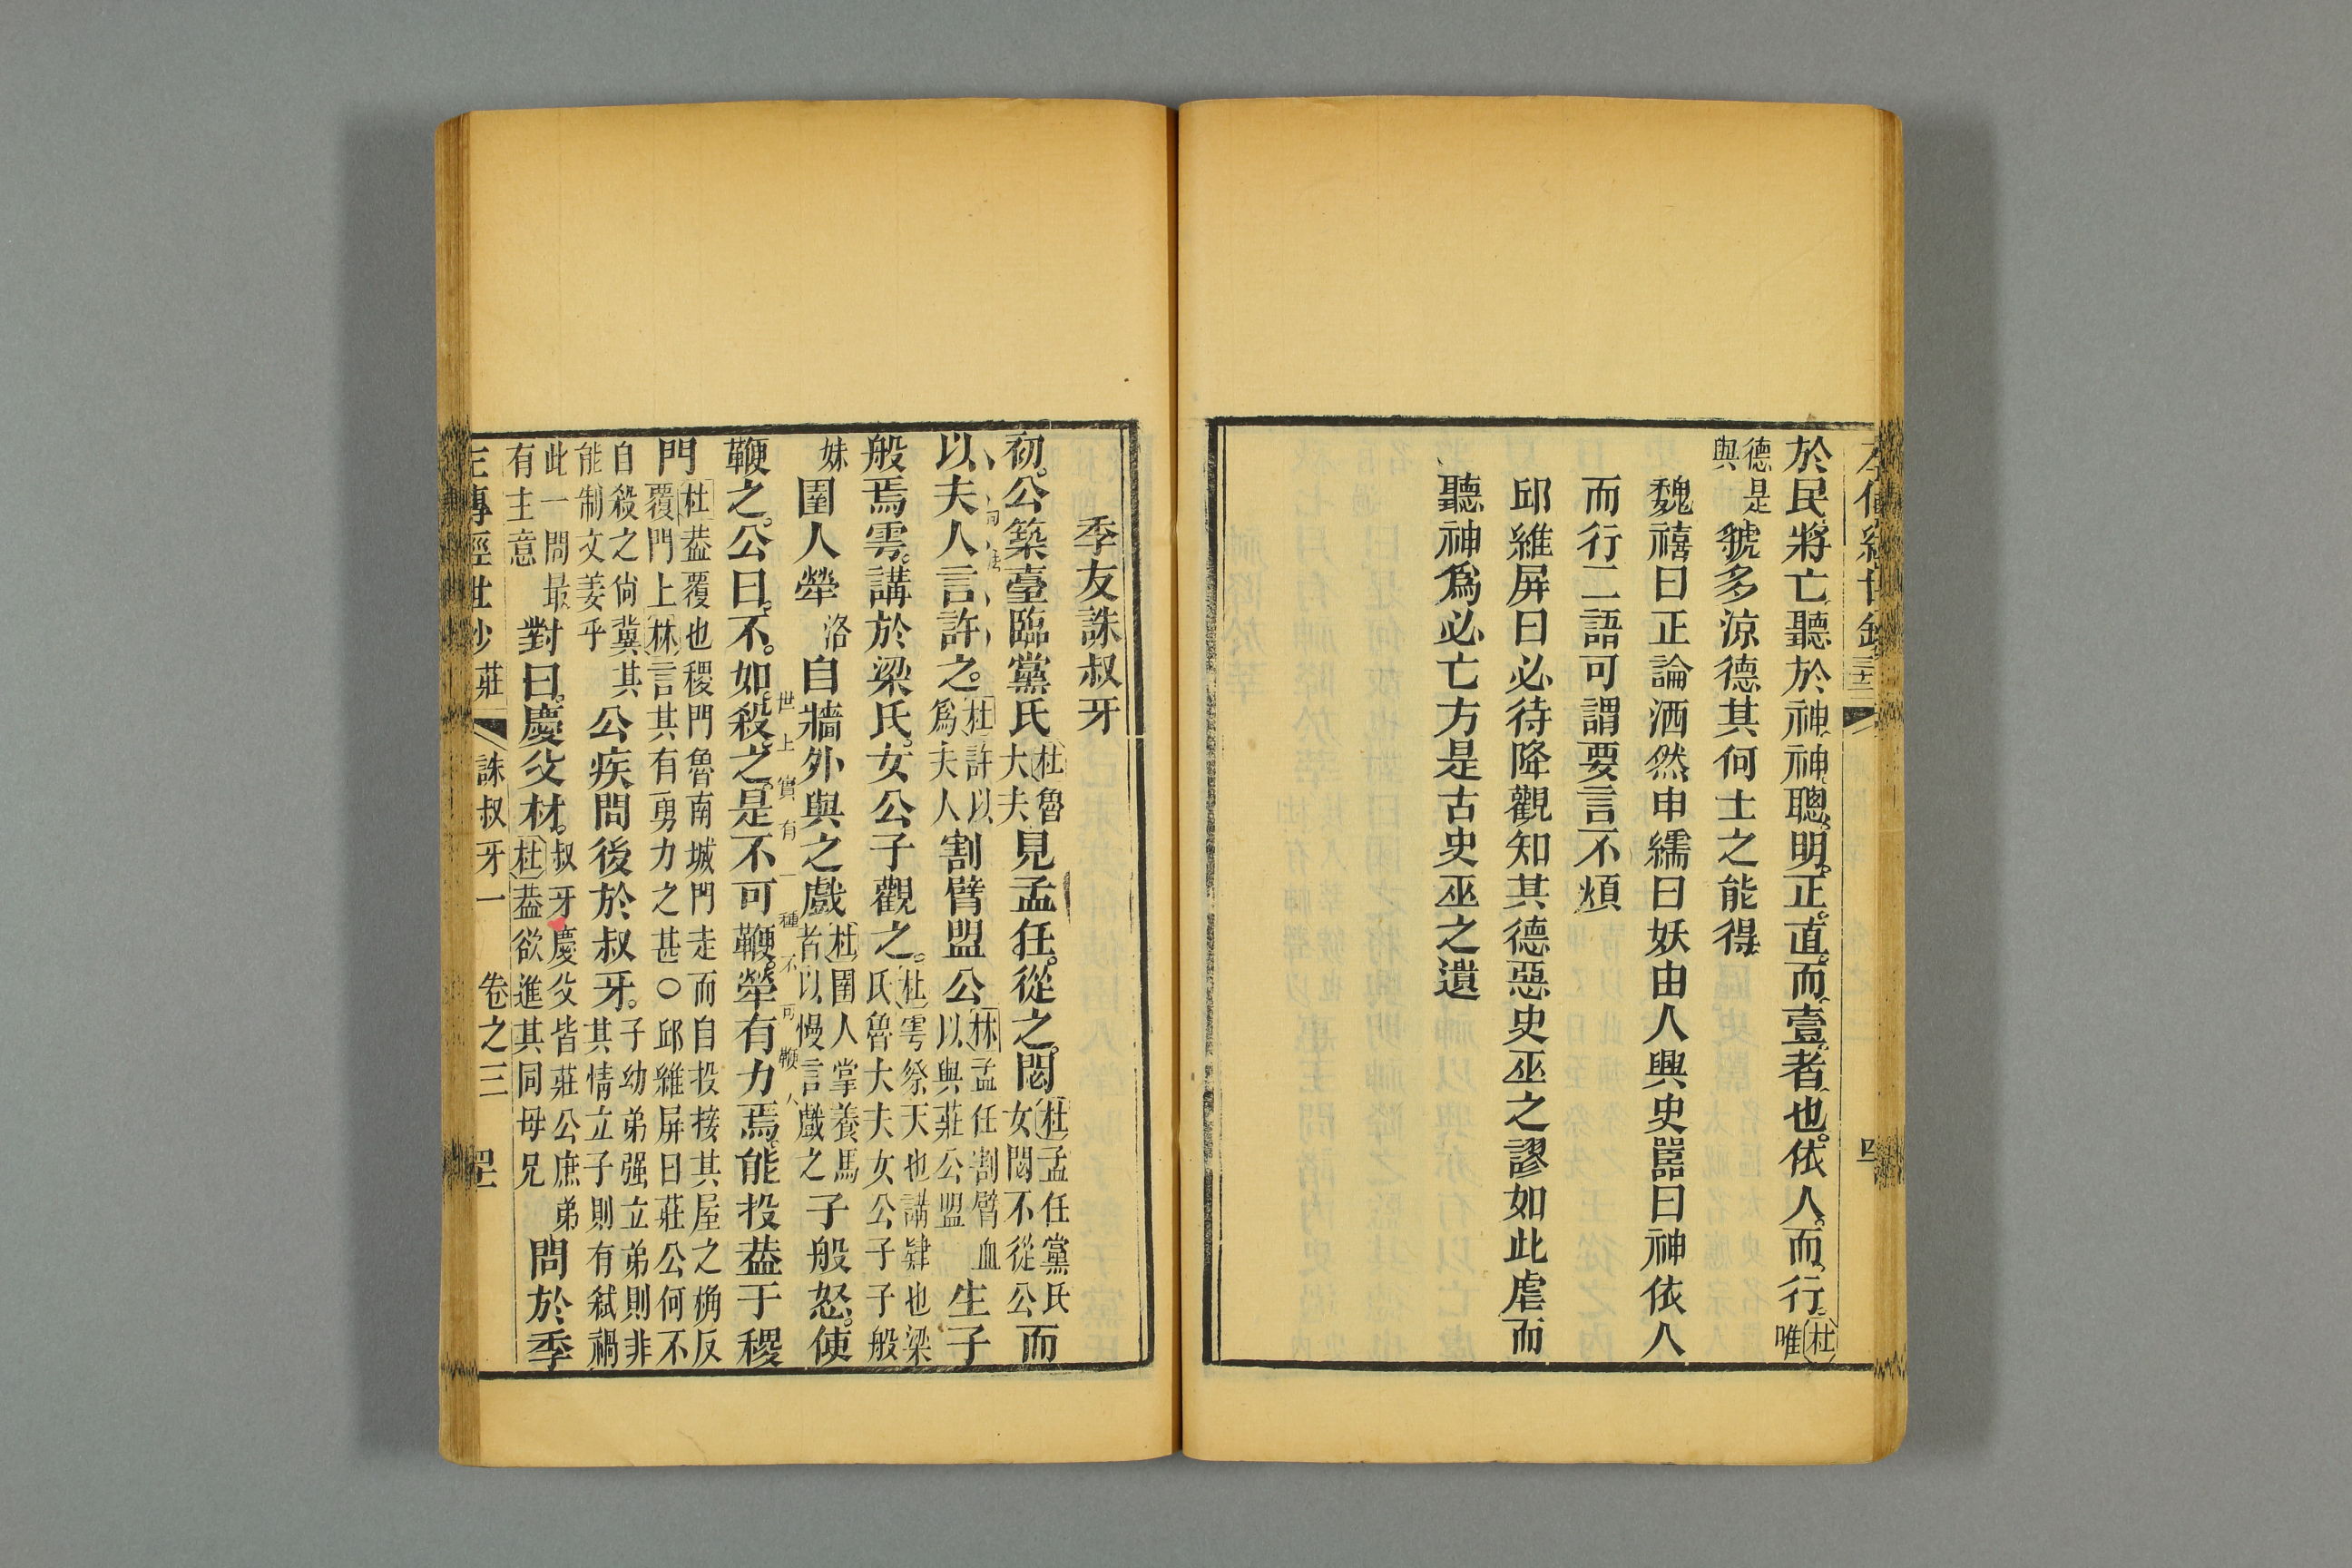 於民將亡聽於神神聰明正直而壹者也依人而行杜唯
德是
與
虢多涼德其何土之能得
魏禧曰正論洒然申繻曰妖由人興史嚚曰神依人
而行二語可謂要言不煩
邱維屏曰必待降觀知其德惡史巫之謬如此虐而
聽神爲必亡方是古史巫之遺
季友誅叔牙
初公築臺臨黨氏
杜魯
大夫
見孟任從之閟
杜孟任黨氏
女閟不從公
而
以夫人言許之
杜許以
爲夫人
割臂盟公
林孟任割臂血
以與莊公盟
生子
般焉雩講於梁氏女公子觀之
杜雩祭天也講肄也梁
氏魯大夫女公子子般
妹
圉人犖
洛
自牆外與之戲
杜圉人掌養馬
者以慢言戲之
子般怒使
鞭之公曰不如殺之是不可鞭犖有力焉能投葢于稷
世上實有一種不可鞭人
門
杜葢覆也稷門魯南城門走而自投接其屋之桷反
覆門上林言其有勇力之甚○邱維屏曰莊公何不
自殺之倘冀其
能制文姜乎
公疾問後於叔牙
子幼弟强立弟則非
其情立子則有弑禍
此一問最
有主意
對曰慶父材
叔牙慶父皆莊公庶弟
杜葢欲進其同母兄
問於季
左傳經世鈔
莊
誅叔牙一
卷之三